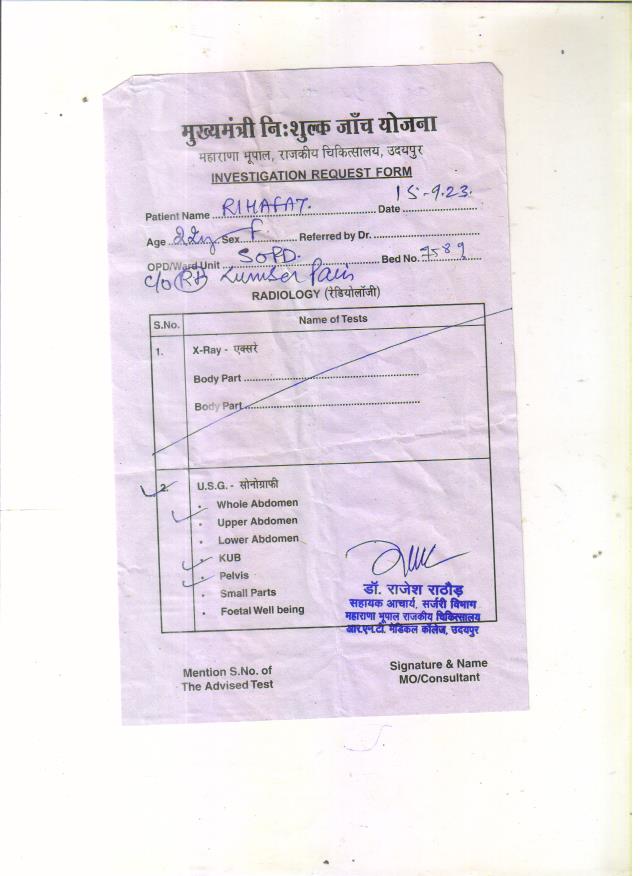 मुख्यमंत्री निःशुल्क जाँच योजना
महाराणा भूपाल, राजकीय चिकित्सालय, उदयपुर
INVESTIGATION REQUEST FORM
Patient Name RIHAFAT. Date 15-9.23.
Age 22y Sex F Referred by Dr.
OPD/Ward Unit SOPD. Bed No. 7589
C/O RT Lumber Pain
RADIOLOGY (रेडियोलॉजी)
S.No. Name of Tests
1. X-Ray - एक्सरे
Body Part
Body Part
2. U.S.G. - सोनोग्राफी
• Whole Abdomen
• Upper Abdomen
• Lower Abdomen
• KUB
• Pelvis
• Small Parts
• Foetal Well being
डॉ. राजेश राठौड़
सहायक आचार्य, सर्जरी विभाग
महाराणा भूपाल राजकीय चिकित्सालय
आर.एन.टी. मेडिकल कॉलेज, उदयपुर
Mention S.No. of
The Advised Test
Signature & Name
MO/Consultant